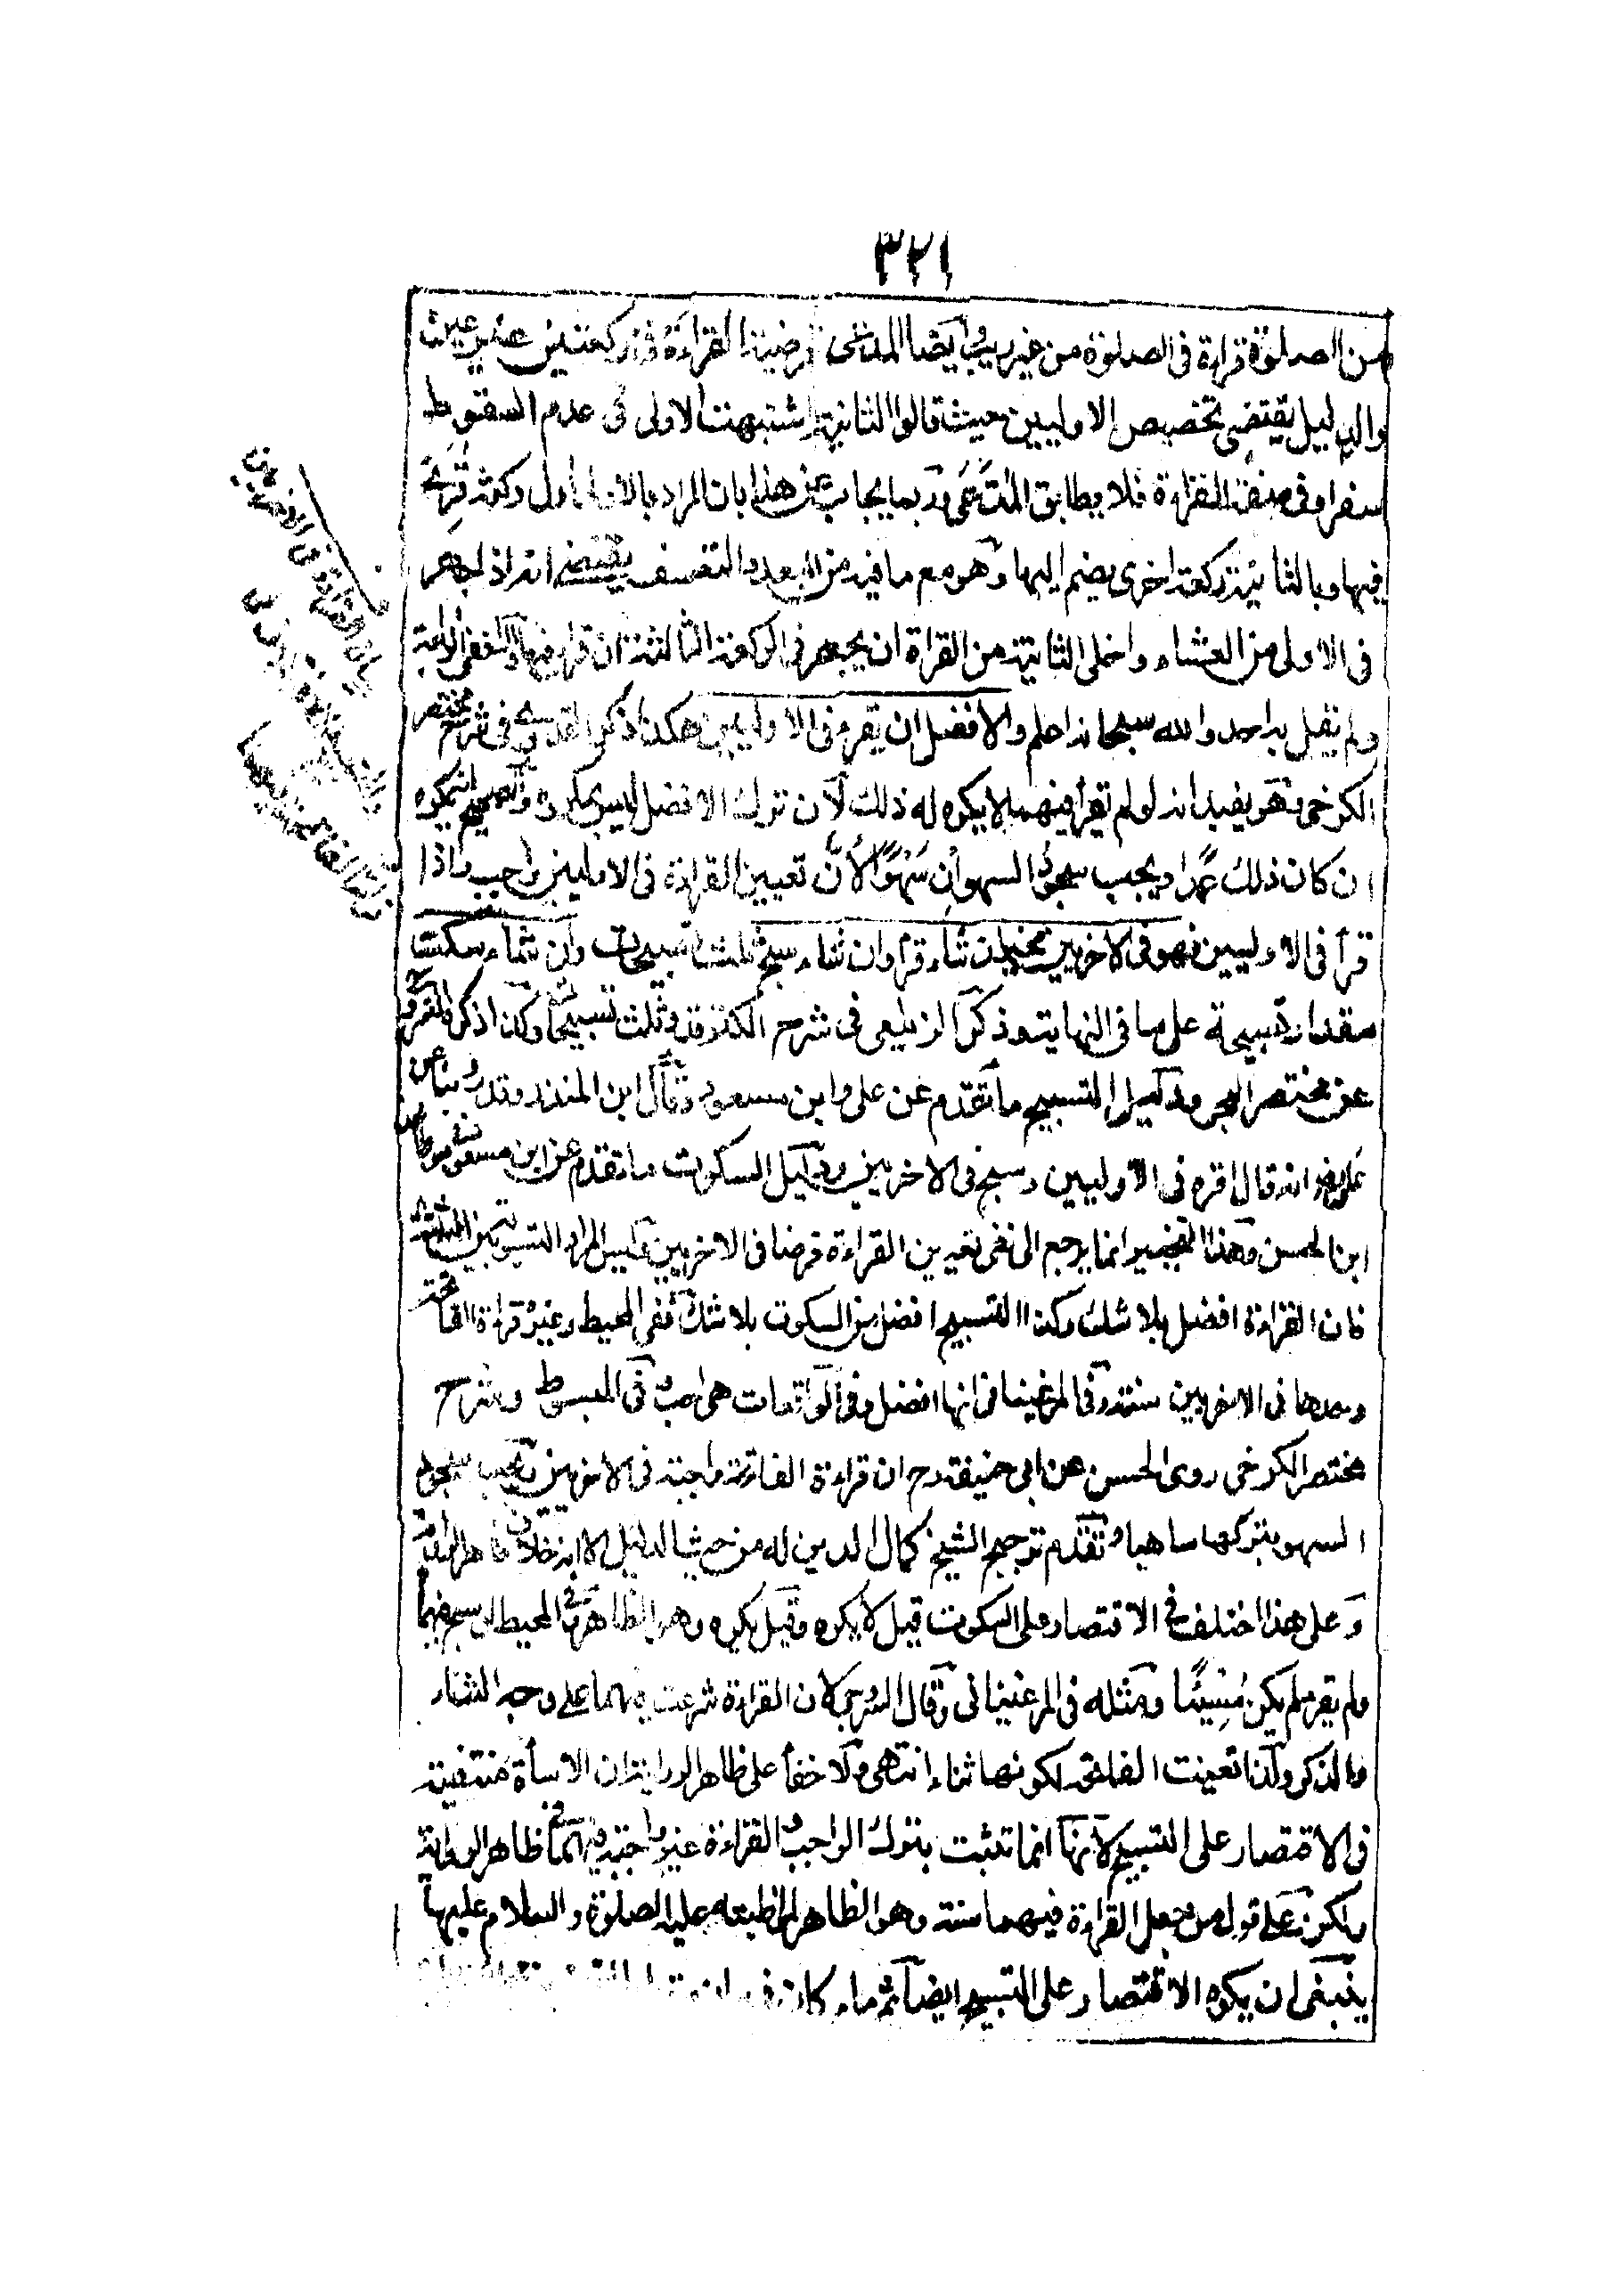 ٣٢١
من الصلوة قراءة فى الصلوة من غير ريب وايضا المدعى فرضية القراءة فى ركعتين غير عين
والدليل يقتضى تخصيص الاوليين حيث قالوا الثانية اشبهت الاولى فى عدم السقوط
سفرا وفى صفة القراءة فلا يطابق المدعى وربما يجاب عن هذا بان المراد بالاولى اول ركعة قرئ
فيها وبالثانية ركعة اخرى يضم اليها وهو مع ما فيه من البعد والتعسف يقتضى انه اذا جهر
فى الاولى من العشاء واخلى الثانية من القراة ان يجهر فى الركعة الثالثة ان قرا فيها
ولم يقل به احد والله سبحانه اعلم والافضل ان يقرء فى الاوليين هكذا ذكر القدورى فى شرح مختصر
الكرخى وهو يفيد انه لو لم يقرأ فيهما لا يكره له ذلك لان ترك الافضل ليس بمكروه والصحيح انه يكره
ان كان ذلك عمدا ويجب سجود السهو ان سَهْوًا لأنّ تعيين القراءة فى الاوليين واجب واذا
قرأ فى الاوليين فهو فى الاخريين مخير ان شاء قرأ وان شاء سبح ثلث تسبيحات وان شاء سكت
مقدار تسبيحة على ما فى النهاية وذكر الزيلعى فى شرح الكنز قدر ثلث تسبيحات وكذا ذكر
عن مختصر البحر ودليل التسبيح ما تقدم عن على وابن مسعود وقال ابن المنذر وقد روينا عن
على رض انه قال اقرء فى الاوليين وسبح فى الاخريين ودليل السكوت ما تقدم عن ابن مسعود
ابن الحسن وهذا التخيير انما يرجع الى نفى تعيين القراءة فرضا فى الاخريين وليس المراد التسوية بين الثلثة
فان القراءة افضل بلا شك وكذا التسبيح افضل من السكوت بلا شك ففى المحيط وغيره قراءة الفاتحة
وحدها فى الاخريين سنة وفى المرغينانى انها افضل وفى الواقعات هى احب وفى المبسوط وشرح
مختصر الكرخى روى الحسن عن ابى حنيفة رح ان قراءة الفاتحة واجبة فى الاخريين تجب سجود
السهو بتركها ساهيا وتقدم ترجيح الشيخ كمال الدين له من حيث الدليل الا انه خلاف ظاهر الرواية
وعلى هذا اختلف فى الاقتصار على السكوت قيل لا يكره وقيل يكره وهو الظاهر وفى المحيط لو سبح فيهما
ولم يقرء لم يكن مُسِيئًا ومثله فى المرغينانى وقال السروجى لان القراءة شرعت فيهما على وجه الثناء
والذكر ولذا تعينت الفاتحة لكونها ثناء انتهى ولا خفأ على ظاهر الرواية ان الاسأة منتفية
فى الاقتصار على التسبيح لانها انما تثبت بترك الواجب والقراءة غير واجبة فيهما فى ظاهر الرواية
ولكن على قول من جعل القراءة فيهما سنة وهو الظاهر لمواظبته عليه الصلوة والسلام عليها
ينبغى ان يكره الاقتصار على التسبيح ايضا ثم ما كان